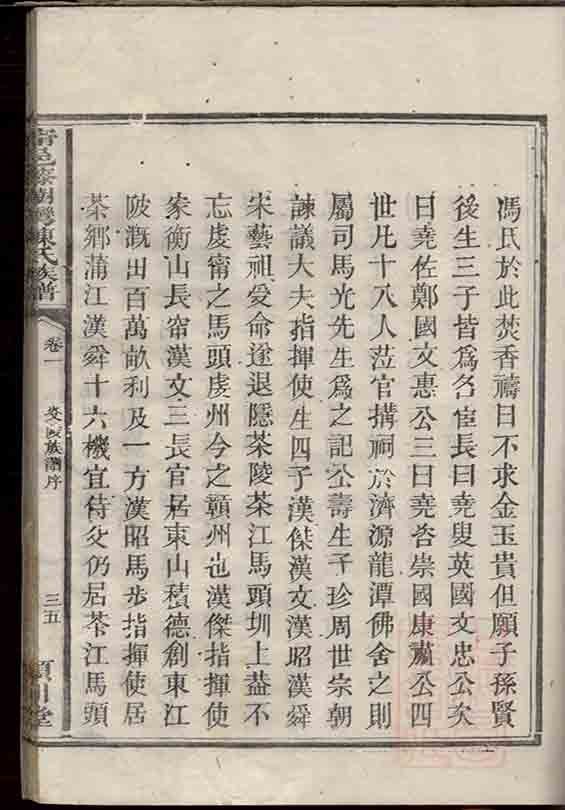 馮氏於此焚香禱曰不求金玉貴但願子孫賢
後生三子皆爲名宦長曰堯叟英國文忠公次
曰堯佐鄭國文惠公三曰堯咨崇國康肅公四
世凡十八人蒞官搆祠於濟源龍潭佛舍之則
屬司馬光先生爲之記公壽生子珍周世宗朝
諫議大夫指揮使生四子漢傑漢文漢昭漢舜
宋藝祖受命遂退隱茶陵茶江馬頭圳上葢不
忘虔甯之馬頭虔州今之贛州也漢傑指揮使
家衡山長甯漢文三長官居東山積德創東江
陂溉田百萬畝利及一方漢昭馬步指揮使居
茶鄉蒲江漢舜十六機宜侍父仍居茶江馬頭
陳氏族譜
卷一
族譜序
三五
堂